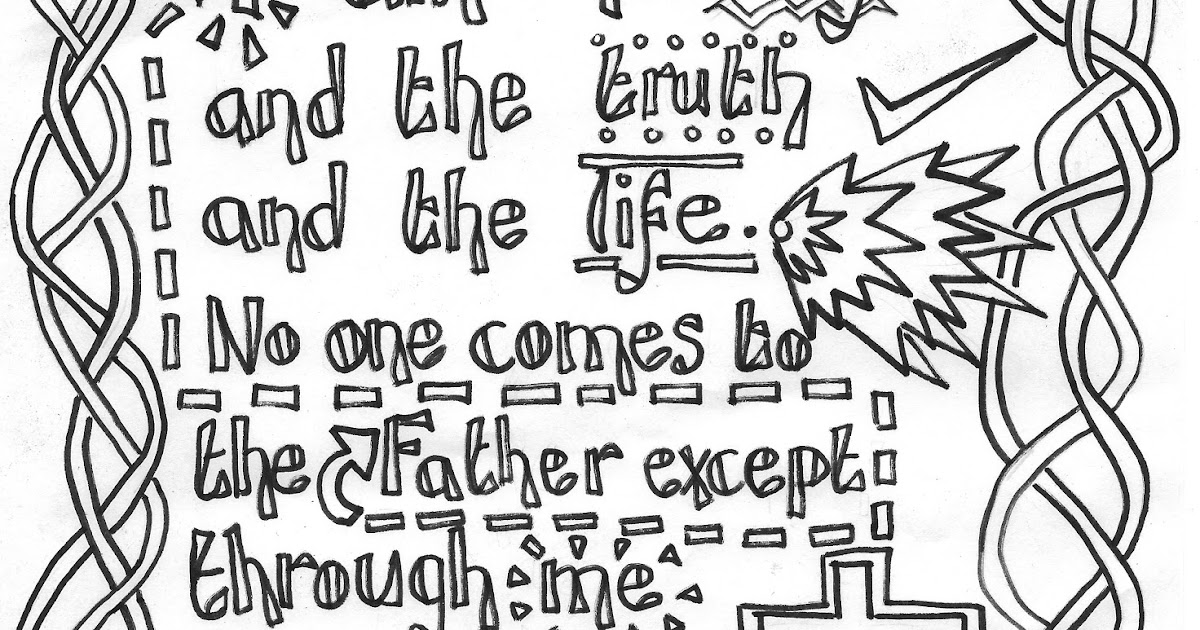 and the truth
and the life.
No one comes to
the Father except
through me